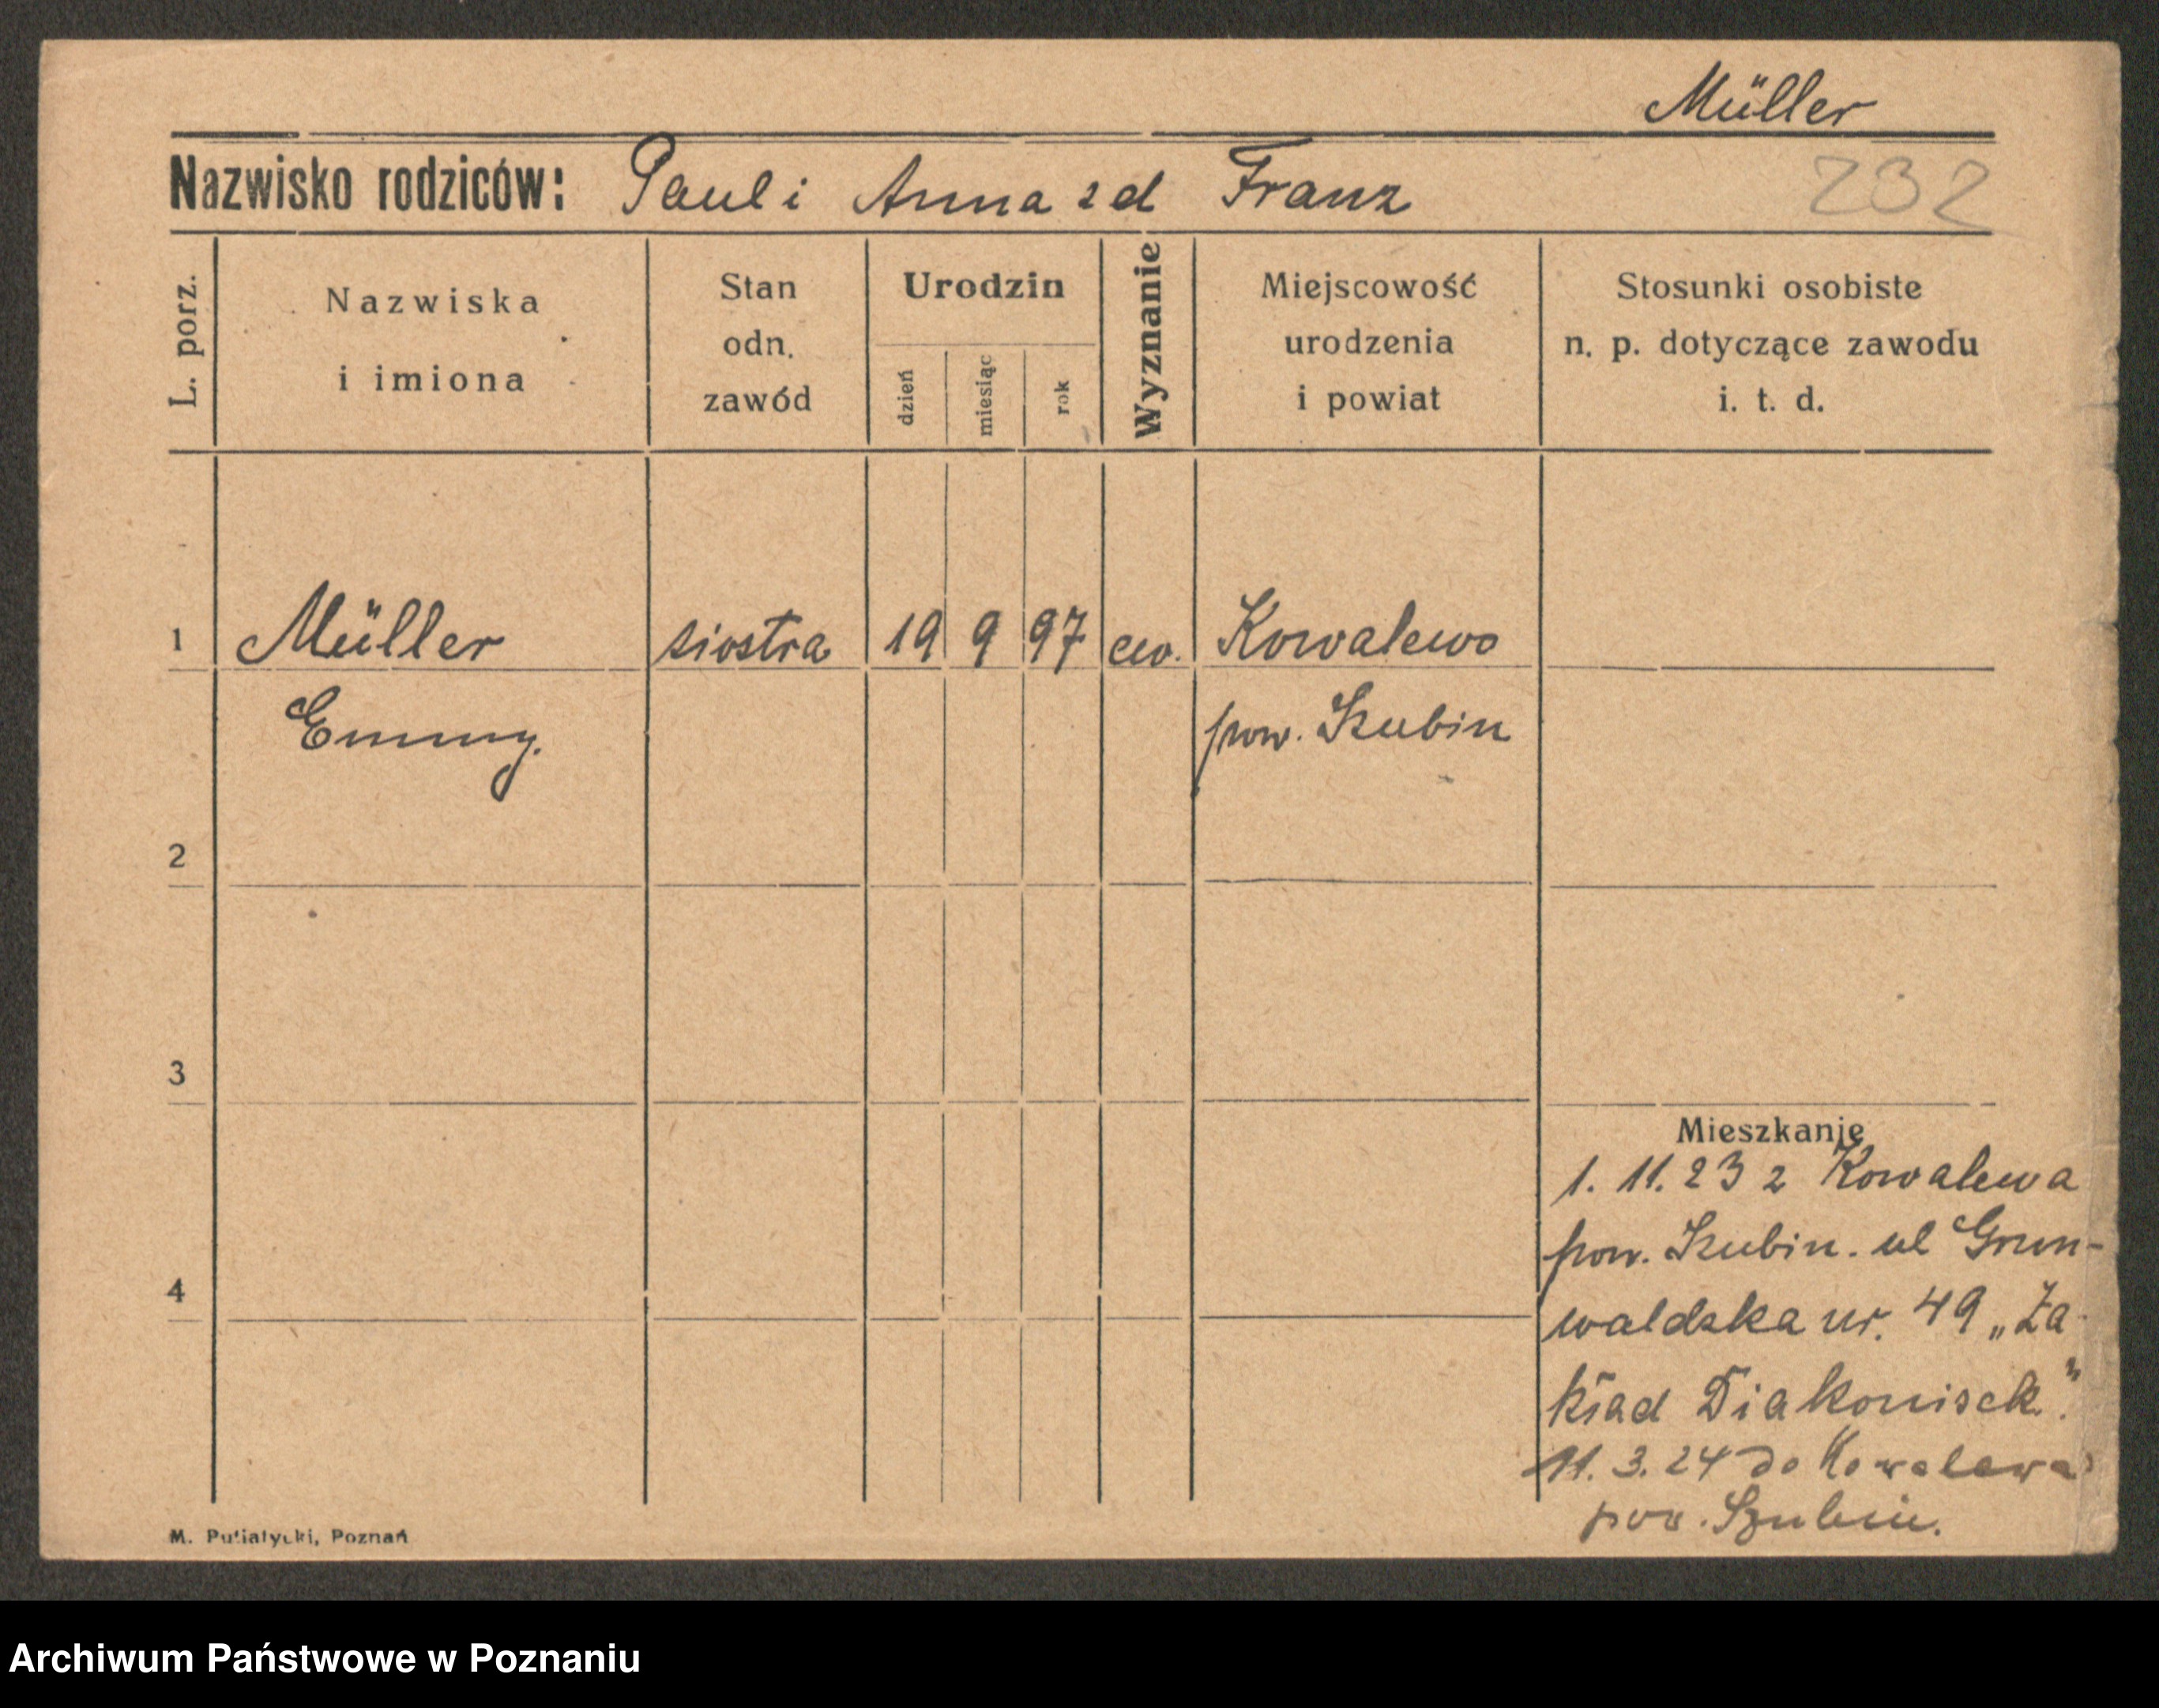 Müller
Nazwisko rodziców: Paul i Anna z d Franz
232
L. porz.
Nazwiska
i imiona
Stan
odn.
zawód
Urodzin
dzień
miesiąc
rok
Wyznanie
Miejscowość
urodzenia
i powiat
Stosunki osobiste
n. p. dotyczące zawodu
i. t. d.
1 Müller siostra 19 9 97 ew. Kowalewo
Emmy. pow. Szubin
2
3
Mieszkanie
1. 11. 23 z Kowalewa
pow. Szubin. ul Grun-
4
waldzka nr. 49 „Za-
kład Diakonisek."
11. 3. 24 do Kowalewa
pow. Szubin.
M. Putiatycki, Poznań
Archiwum Państwowe w Poznaniu